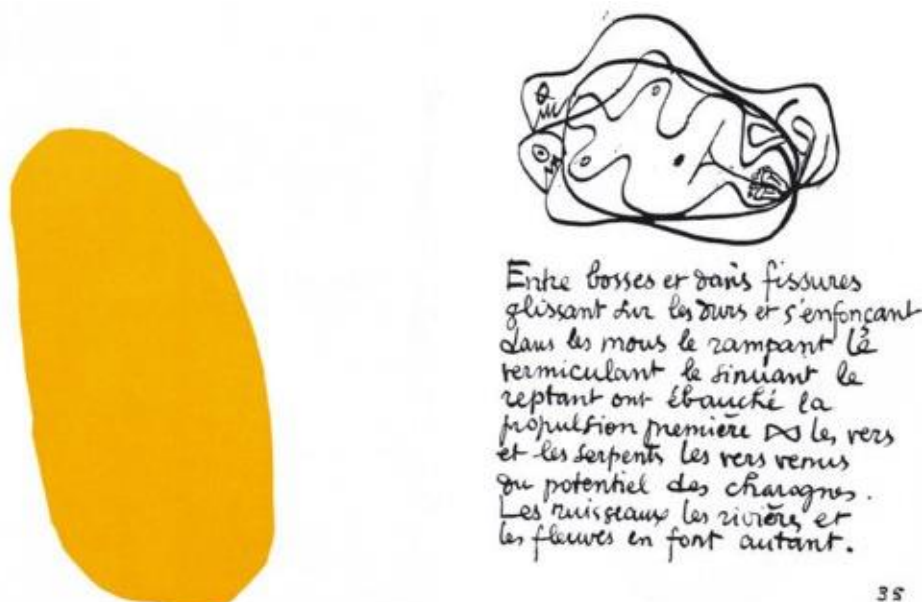 Entre bosses et dans fissures
glissant sur les durs et s'enfonçant
dans les mous le rampant le
vermiculant le sinuant le
reptant ont ébauché la
propulsion première ⋈ les vers
et les serpents les vers venus
du potentiel des charognes.
Les ruisseaux les rivières et
les fleuves en font autant.
35